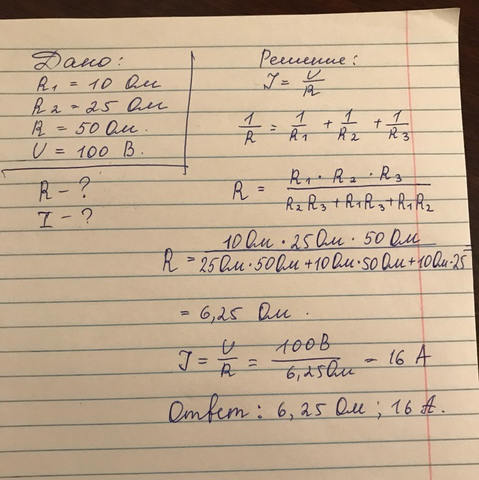 Дано:
R₁ = 10 Ом
R₂ = 25 Ом
R = 50 Ом.
U = 100 В.
R - ?
I - ?
Решение:
I = U/R
1/R = 1/R₁ + 1/R₂ + 1/R₃
R = R₁ · R₂ · R₃ / R₂R₃ + R₁R₃ + R₁R₂
R = 10 Ом · 25 Ом · 50 Ом / 25 Ом · 50 Ом + 10 Ом · 50 Ом + 10 Ом · 25 =
= 6,25 Ом.
I = U/R = 100 В / 6,25 Ом = 16 А
Ответ: 6,25 Ом; 16 А.